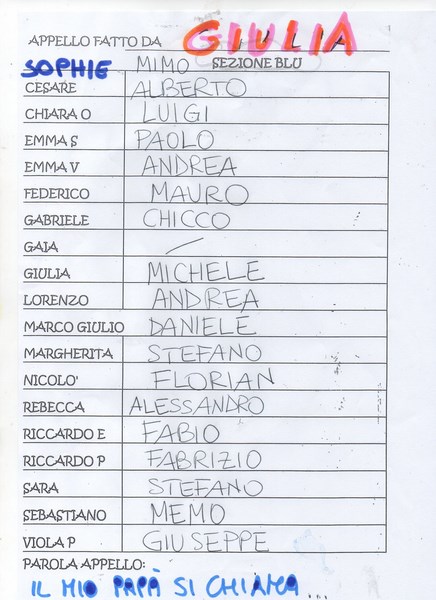 APPELLO FATTO DA GIULIA
SOPHIE MIMO SEZIONE BLU
CESARE ALBERTO
CHIARA O LUIGI
EMMA S PAOLO
EMMA V ANDREA
FEDERICO MAURO
GABRIELE CHICCO
GAIA /
GIULIA MICHELE
LORENZO ANDREA
MARCO GIULIO DANIELE
MARGHERITA STEFANO
NICOLO' FLORIAN
REBECCA ALESSANDRO
RICCARDO E FABIO
RICCARDO P FABRIZIO
SARA STEFANO
SEBASTIANO MEMO
VIOLA P GIUSEPPE
PAROLA APPELLO:
IL MIO PAPÀ SI CHIAMA...